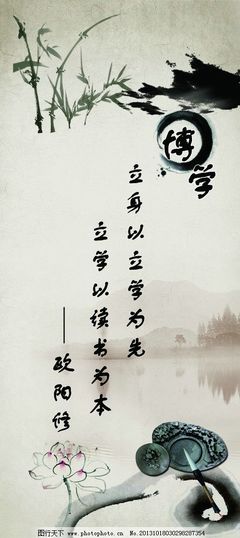 博学
立身以立学为先
立学以读书为本
——欧阳修
图行天下 www.photophoto.cn No.20131018030298287354